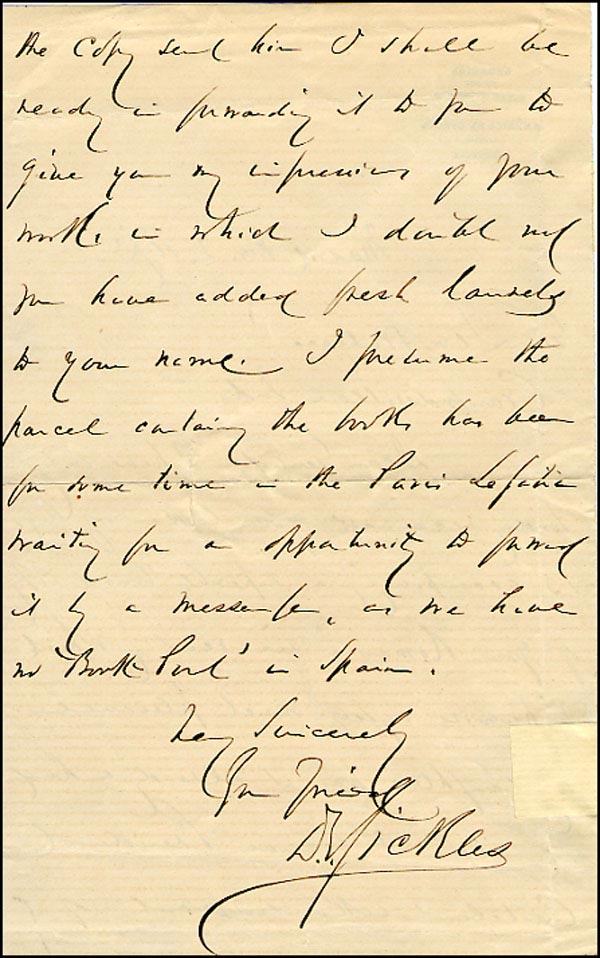 the copy sent him I shall be
ready in forwarding it to you to
give you my impressions of your
work, in which I doubt not
you have added fresh laurels
to your name. I presume the
parcel containing the books has been
for some time in the Paris Legation
waiting for an opportunity to forward
it by a messenger, as we have
no 'Book Post' in Spain.
Very Sincerely
Your friend,
D. E. Sickles